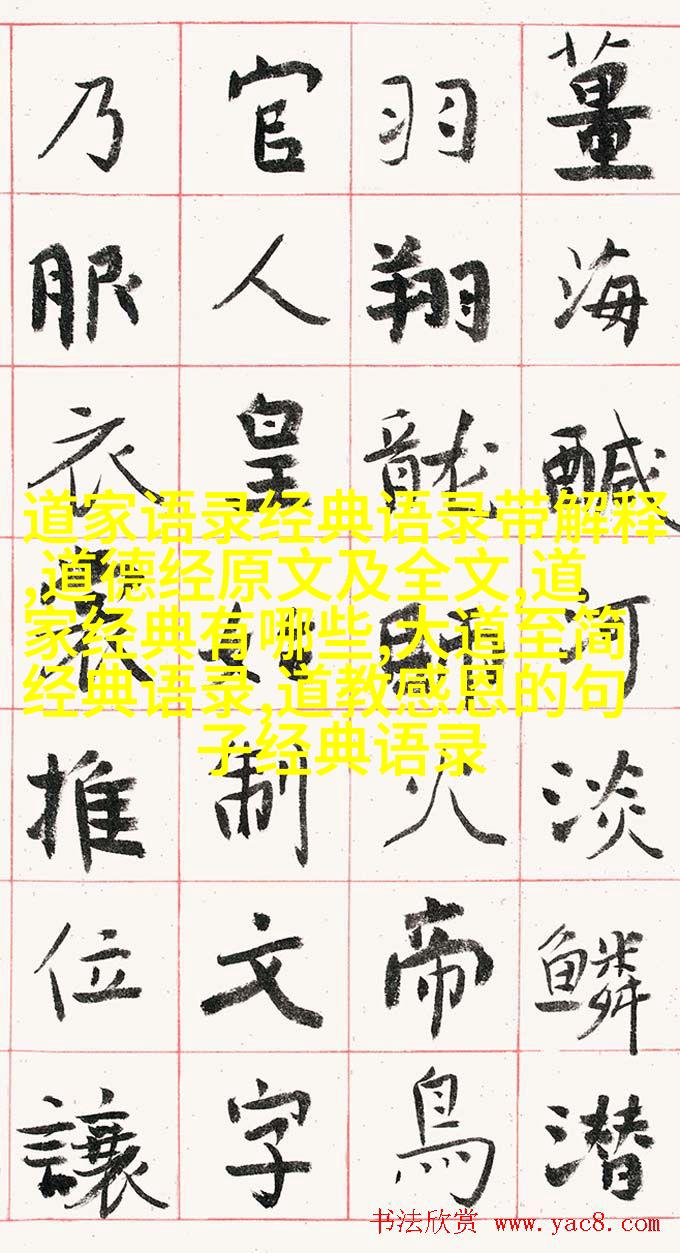 薑海鹹河淡鱗潜
羽翔龍師火帝鳥
官人皇始制文字
乃服衣裳推位讓
道家语录经典语录带解释
,道德经原文及全文,道
家经典有哪些,大道至简
经典语录,道教感恩的句
子经典语录
书法欣赏 www.yac8.com